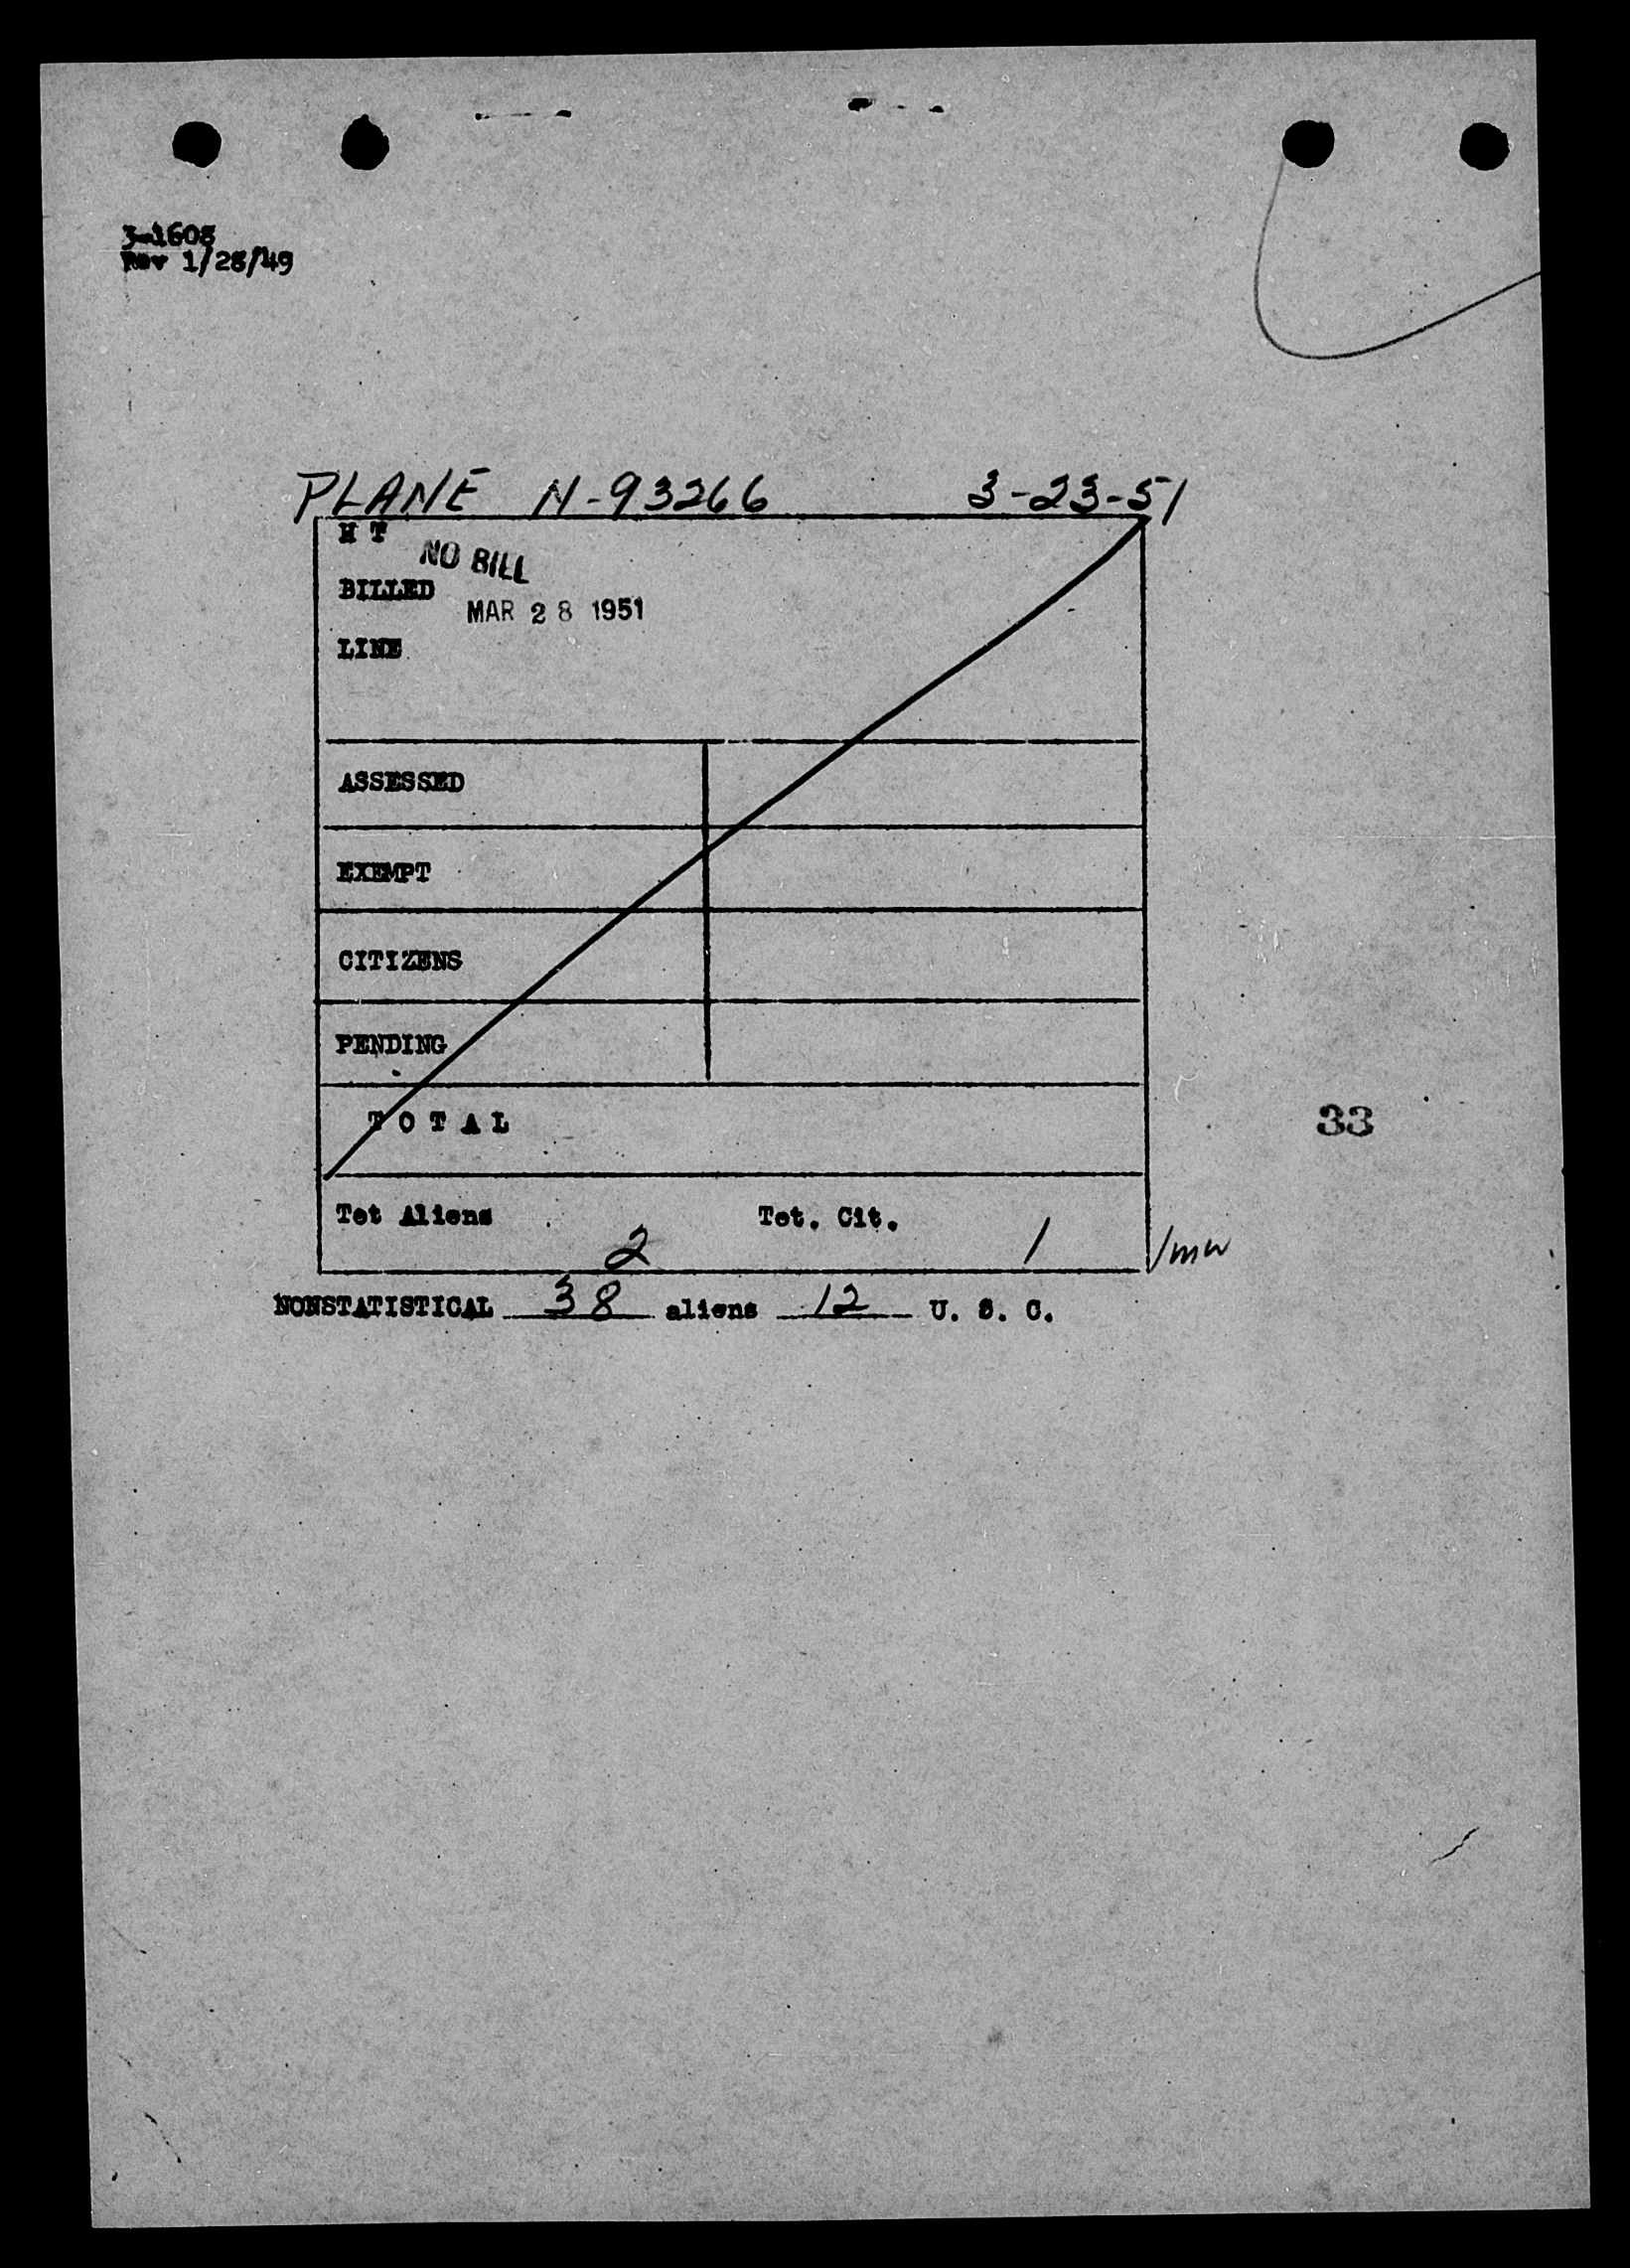 3-1608
Rev 1/28/49
PLANE N-93266 3-23-51
H T
NO BILL
BILLED
MAR 28 1951
LINE
ASSESSED
EXEMPT
CITIZENS
PENDING
TOTAL
33
Tot Aliens 2 Tot. Cit. 1 /mw
NONSTATISTICAL 38 aliens 12 U. S. C.